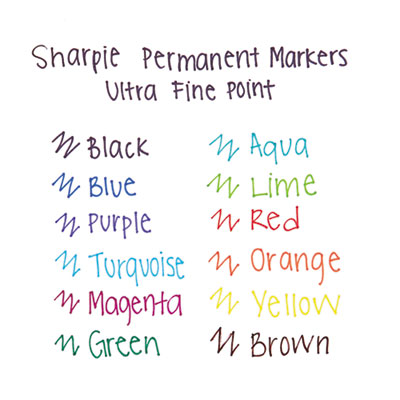 Sharpie Permanent Markers
Ultra Fine Point
Black
Blue
Purple
Turquoise
Magenta
Green
Aqua
Lime
Red
Orange
Yellow
Brown